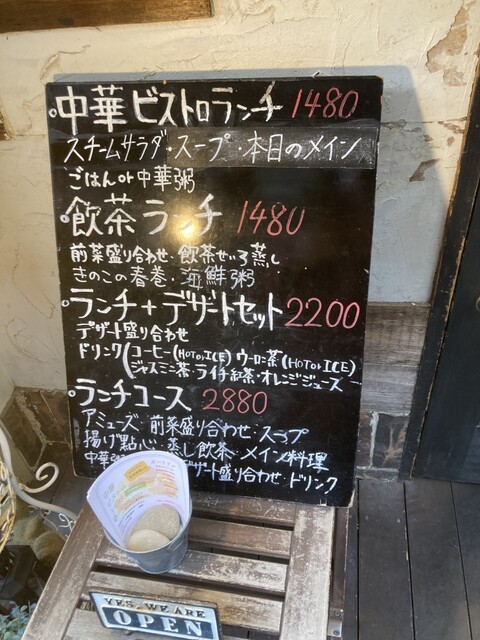 中華ビストロランチ 1480
スチームサラダ・スープ・本日のメイン
ごはんor中華粥
飲茶ランチ 1480
前菜盛り合わせ・飲茶せいろ蒸し
きのこの春巻・海鮮粥
ランチ+デザートセット 2200
デザート盛り合わせ
ドリンク(コーヒー(HOTorICE) ウーロン茶(HOTorICE)
ジャスミン茶・ライチ紅茶・オレンジジュース
ランチコース 2880
アミューズ・前菜盛り合わせ・スープ
揚げ點心・蒸し飲茶・メイン料理
中華 デザート盛り合わせ・ドリンク
YES, WE ARE
OPEN